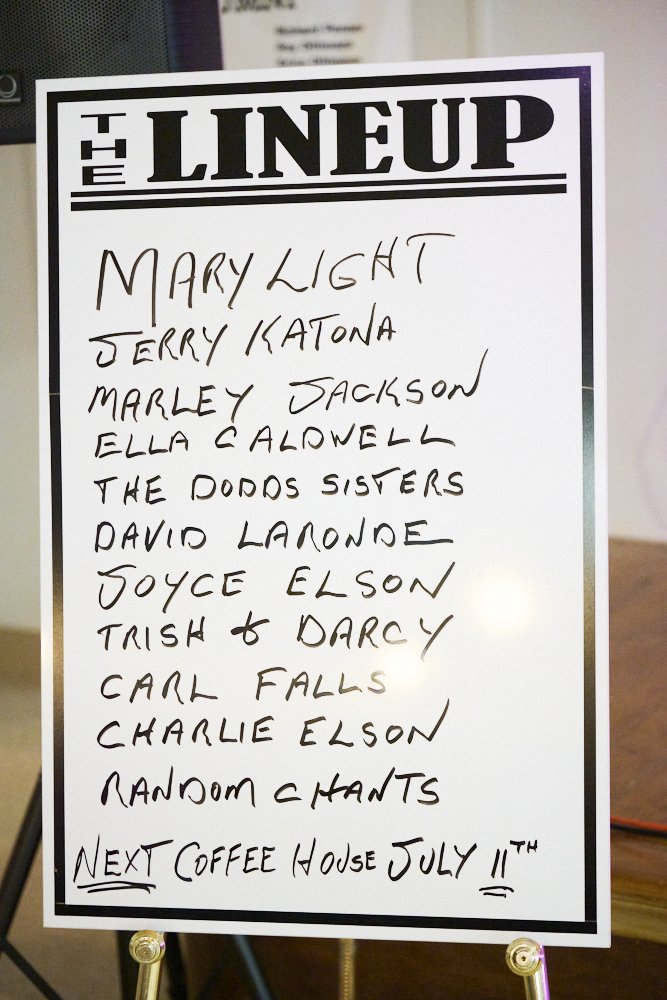 THE LINEUP
MARY LIGHT
JERRY KATONA
MARLEY JACKSON
ELLA CALDWELL
THE DODDS SISTERS
DAVID LARONDE
JOYCE ELSON
TRISH & DARCY
CARL FALLS
CHARLIE ELSON
RANDOM CHANTS
NEXT COFFEE HOUSE JULY 11TH